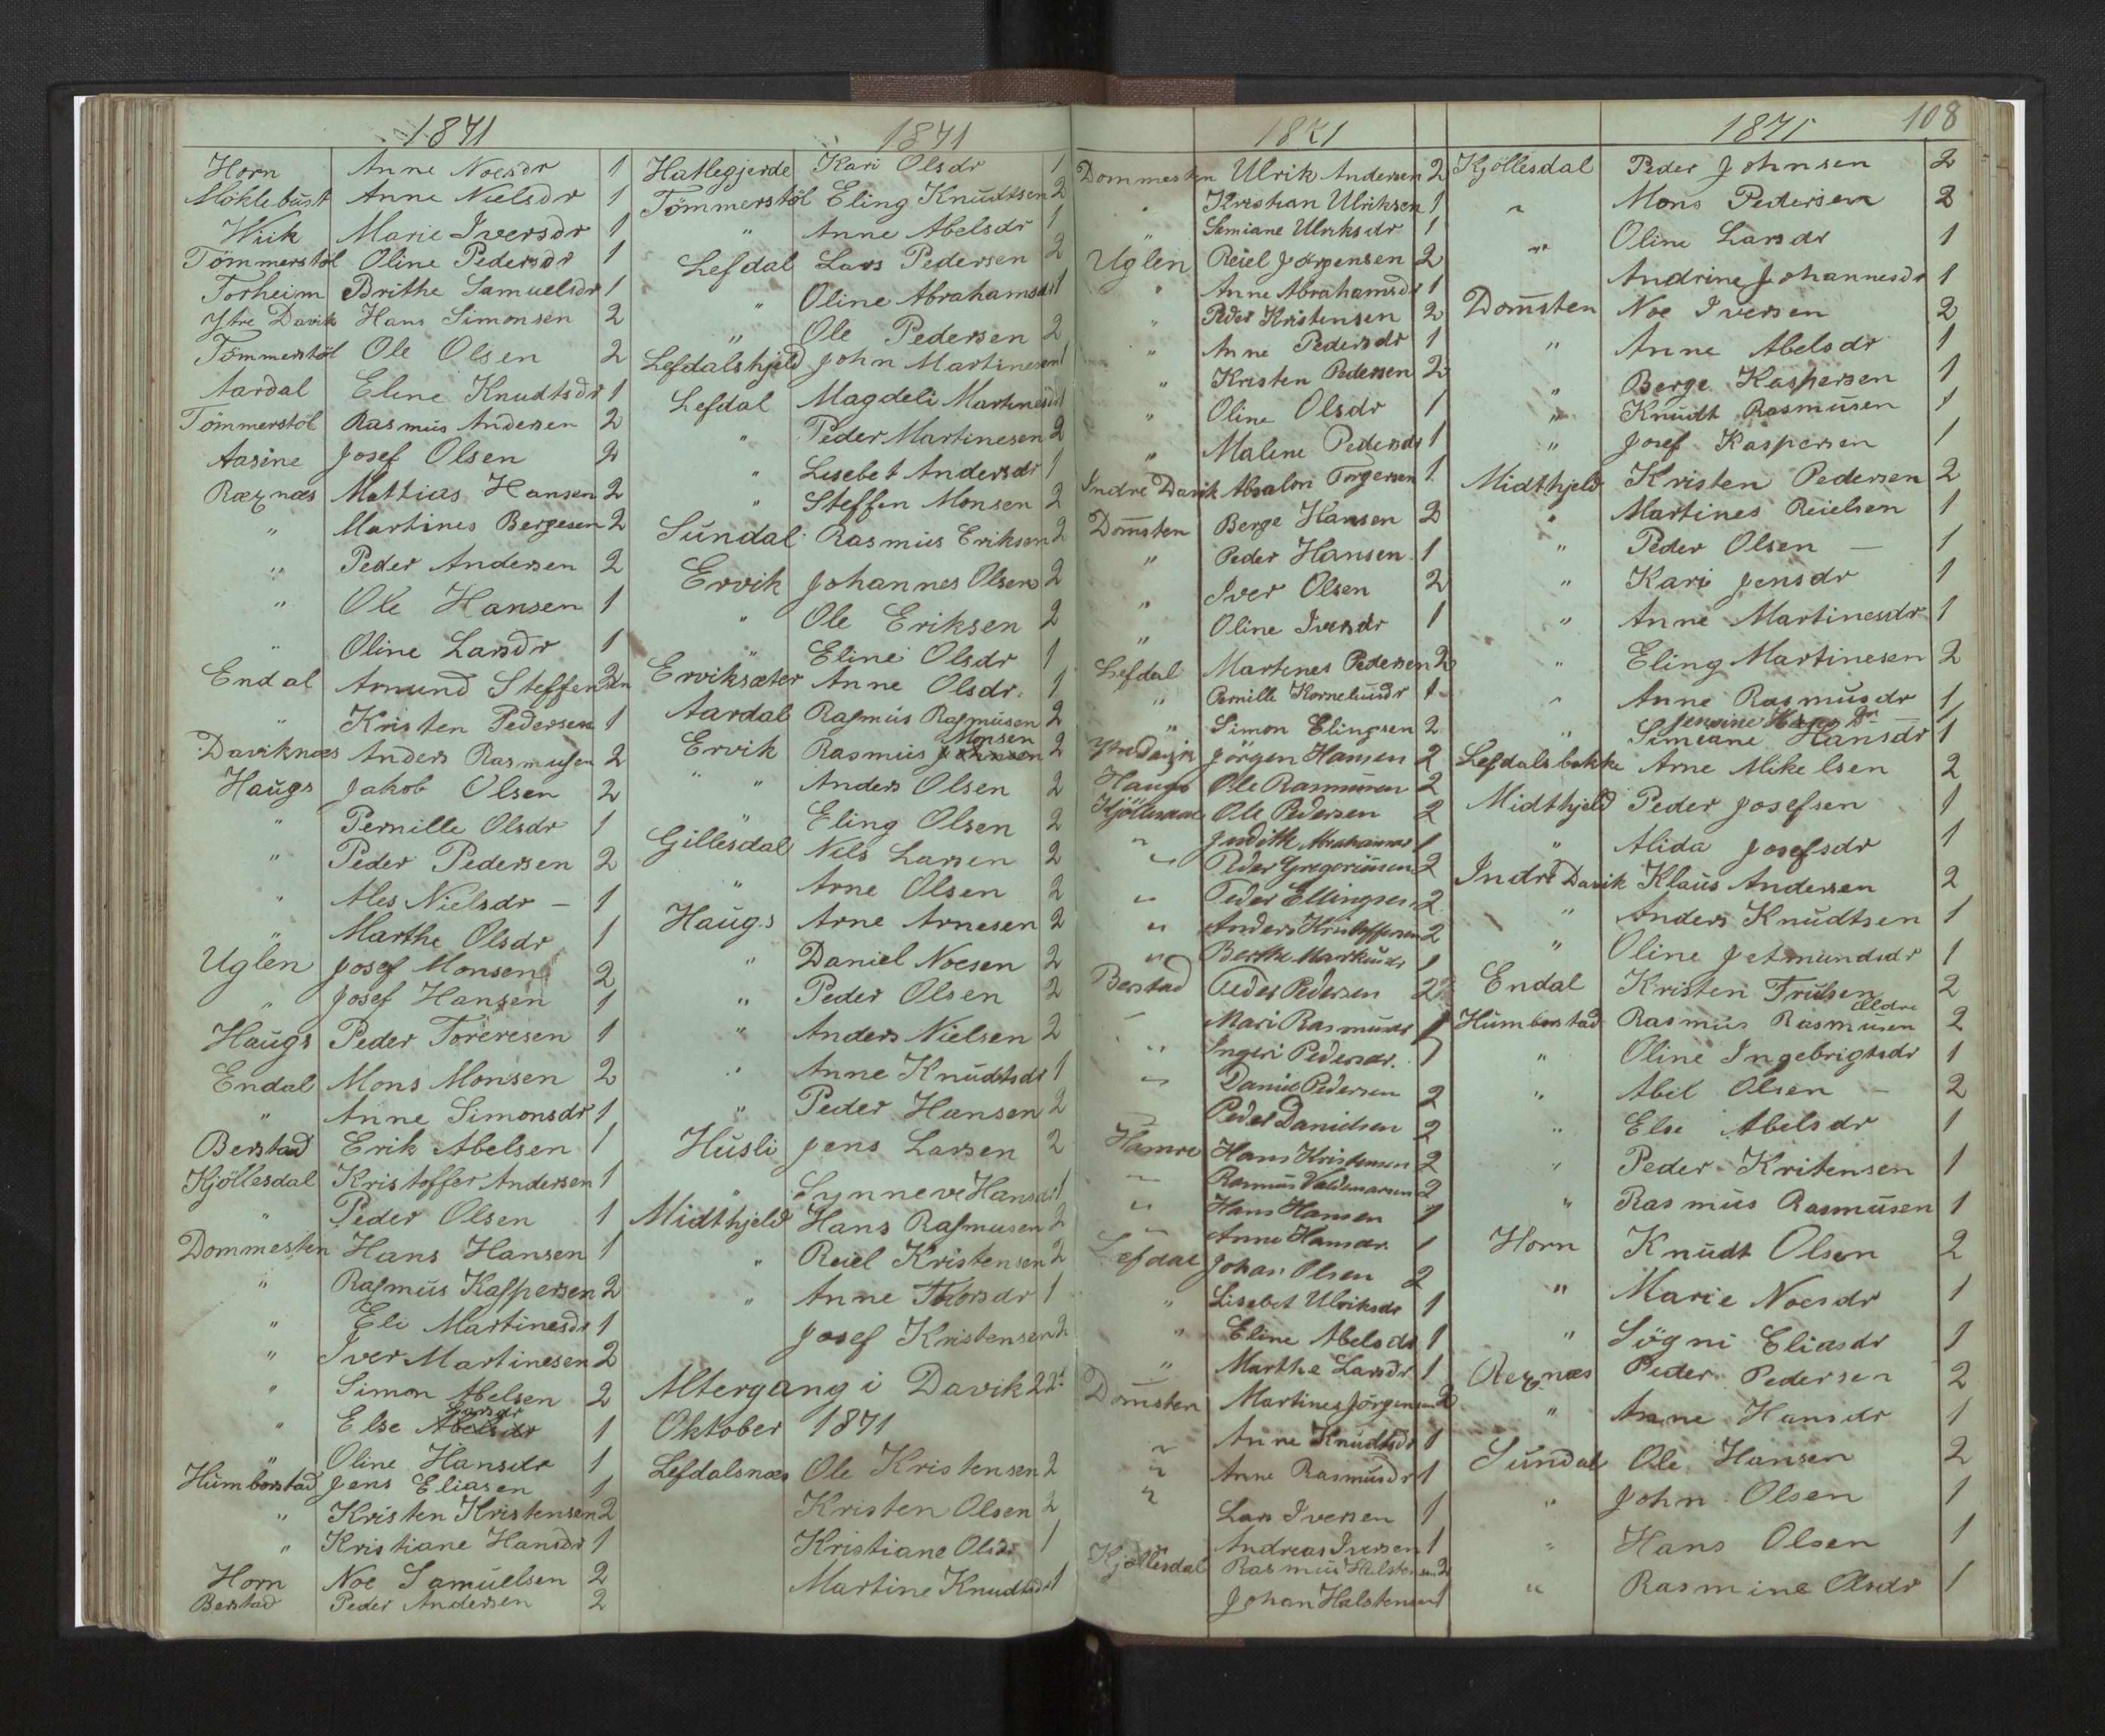 1871
Horn Anne Noesdr 1
Möklebust Anne Nielsdr 1
Wiik Marie Iversdr 1
Tömmerstöl Oline Pedersdr 1
Torheim Brithe Samuelsdr 1
Ytre Davik Hans Simonsen 2
Tömmerstöl Ole Olsen 2
Aardal Eline Knudtsdr 1
Tömmerstöl Rasmus Andersen 2
Aasine Josef Olsen 2
Ræznæs Mathias Hansen 2
" Martines Bergesen 2
" Peder Andersen 2
" Ole Hansen 1
" Oline Larsdr 1
Endal Amund Steffensen 2
" Kristen Pedersen 1
Daviknæs Anders Rasmusen 2
Haugs Jakob Olsen 2
" Pernille Olsdr 1
" Peder Pedersen 2
" Ales Nielsdr – 1
" Marthe Olsdr 1
Uglen Josef Monsen 2
" Josef Hansen 1
Haugs Peder Toreresen 1
Endal Mons Monsen 2
" Anne Simonsdr 1
Berstad Erik Abelsen 1
Kjöllesdal Kristoffer Andersen 1
" Peder Olsen 1
Dommesten Hans Hansen 1
" Rasmus Kaspersen 2
" Eli Martinesdr 1
" Iver Martinesen 2
" Simon Abelsen 2
" Else Abelsdr Larsdr 1
" Oline Hansdr 1
Humborstad Jens Eliasen 1
" Kristen Kristensen 2
" Kristiane Hansdr 1
Horn Noe Samuelsen 2
Berstad Peder Andersen 2
1871
Hatlegjerde Kari Olsdr 1
Tömmerstöl Eling Knudtsen 2
" Anne Abelsdr 1
Lefdal Lars Pedersen 2
" Oline Abrahamsdr 1
" Ole Pedersen 2
Lefdalshjeld John Martinesen 1
Lefdal Magdeli Martinesdr 1
" Peder Martinesen 2
" Lisebet Andersdr 1
" Steffen Monsen 2
Sundal Rasmus Eriksen 2
Ervik Johannes Olsen 2
" Ole Eriksen 2
" Eline Olsdr 1
Erviksæter Anne Olsdr. 1
Aardal Rasmus Rasmusen 2
Ervik Rasmus Johnsen Monsen 2
" " Anders Olsen 2
" Eling Olsen 2
Gillesdal Nils Larsen 2
" Arne Olsen 2
Haugs Arne Arnesen 2
" Daniel Noesen 2
" Peder Olsen 2
" Anders Nielsen 2
" Anne Knudtsdr 1
" Peder Hansen 2
Husli Jens Larsen 2
" Synneve Hansdr 1
Midthjeld Hans Rasmusen 2
" Reiel Kristensen 2
" Anne Thorsdr 1
Josef Kristensen 2
Altergang i Davik 22d
Oktober 1871
Lefdalsnæs Ole Kristensen 2
Kristen Olsen 2
Kristiane Olsdr 1
Martine Knudtsdr 1
1871
Dommesten Ulrik Andersen 2
" Kristian Ulriksen 1
" Simiane Ulriksdr 1
Uglen Reiel Jörgensen 2
" Anne Abrahamsdr 1
" Peder Kristensen 2
" Anne Pedersdr 1
" Kristen Pedersen 2
" Oline Olsdr 1
" Malene Pedersdr 1
Indre Davik Absalon Torgersen 1
Domsten Berge Hansen 2
" Peder Hansen 1
" Iver Olsen 2
" Oline Iversdr 1
Lefdal Martines Pedersen 2
" Pernille Korneliusdr 1
" Simon Elingsen 2
Ytre Davik Jörgen Hansen 2
Haugs Ole Rasmusen 2
Kjöllesdal Ole Pedersen 2
" Judith Abrahamsdr 1
" Peder Gregoriusen 2
" Peder Ellingsen 2
" Anders Kristoffersen 2
" Berthe Markusdr 1
Berstad Peder Pedersen 2
" Mari Rasmusdr 1
" Ingeri Pedersdr. 1
" Daniel Pedersen 2
" Peder Danielsen 2
Hamre Hans Kristensen 2
" Rasmus Valdemarsen 2
" Hans Hansen 1
" Anne Hansdr. 1
Lefdal Johan Olsen 2
" Lisebet Ulriksdr 1
" Eline Abelsdr 1
" Marthe Larsdr 1
Domsten Martines Jörgensen 2
" Anne Knudtsdr 1
" Anne Rasmusdr 1
" Lars Iversen 1
Andreas Iversen 1
Kjöllesdal Rasmus Halstensen 2
Johan Halstensen 1
1871 108
Kjöllesdal Peder Johnsen 2
" Mons Pedersen 2
" Oline Larsdr 1
Andrine Johannesdr 1
Domsten Noe Iversen 2
" Anne Abelsdr 1
" Berge Kaspersen 1
" Knudt Rasmusen 1
" Josef Kaspersen 1
Midthjeld Kristen Pedersen 2
" Martines Reielsen 1
" Peder Olsen – 1
" Kari Jensdr 1
" Anne Martinesdr 1
" Eling Martinesen 2
" Anne Rasmusdr 1
" Simeane Hansdr 1
Lefdalsbakke Arne Mikelsen 2
Midthjeld Peder Josefsen 1
" Alida Josefsdr 1
Indre Davik Klaus Andersen 2
" Anders Knudtsen 1
" Oline Jetmundsdr 1
Endal Kristen Trulsen 2
Humborstad Rasmus Rasmusen ældre 2
" Oline Ingebrigtsdr 1
" Abel Olsen – 2
" Else Abelsdr 1
" Peder Kritensen 1
" Rasmus Rasmusen 1
Horn Knudt Olsen 2
" Marie Noesdr 1
" Sögni Eliasdr 1
Ræznæs Peder Pedersen 2
" Anne Hansdr 1
Sundal Ole Hansen 2
" John Olsen 1
" Hans Olsen 1
" Rasmine Olsdr 1